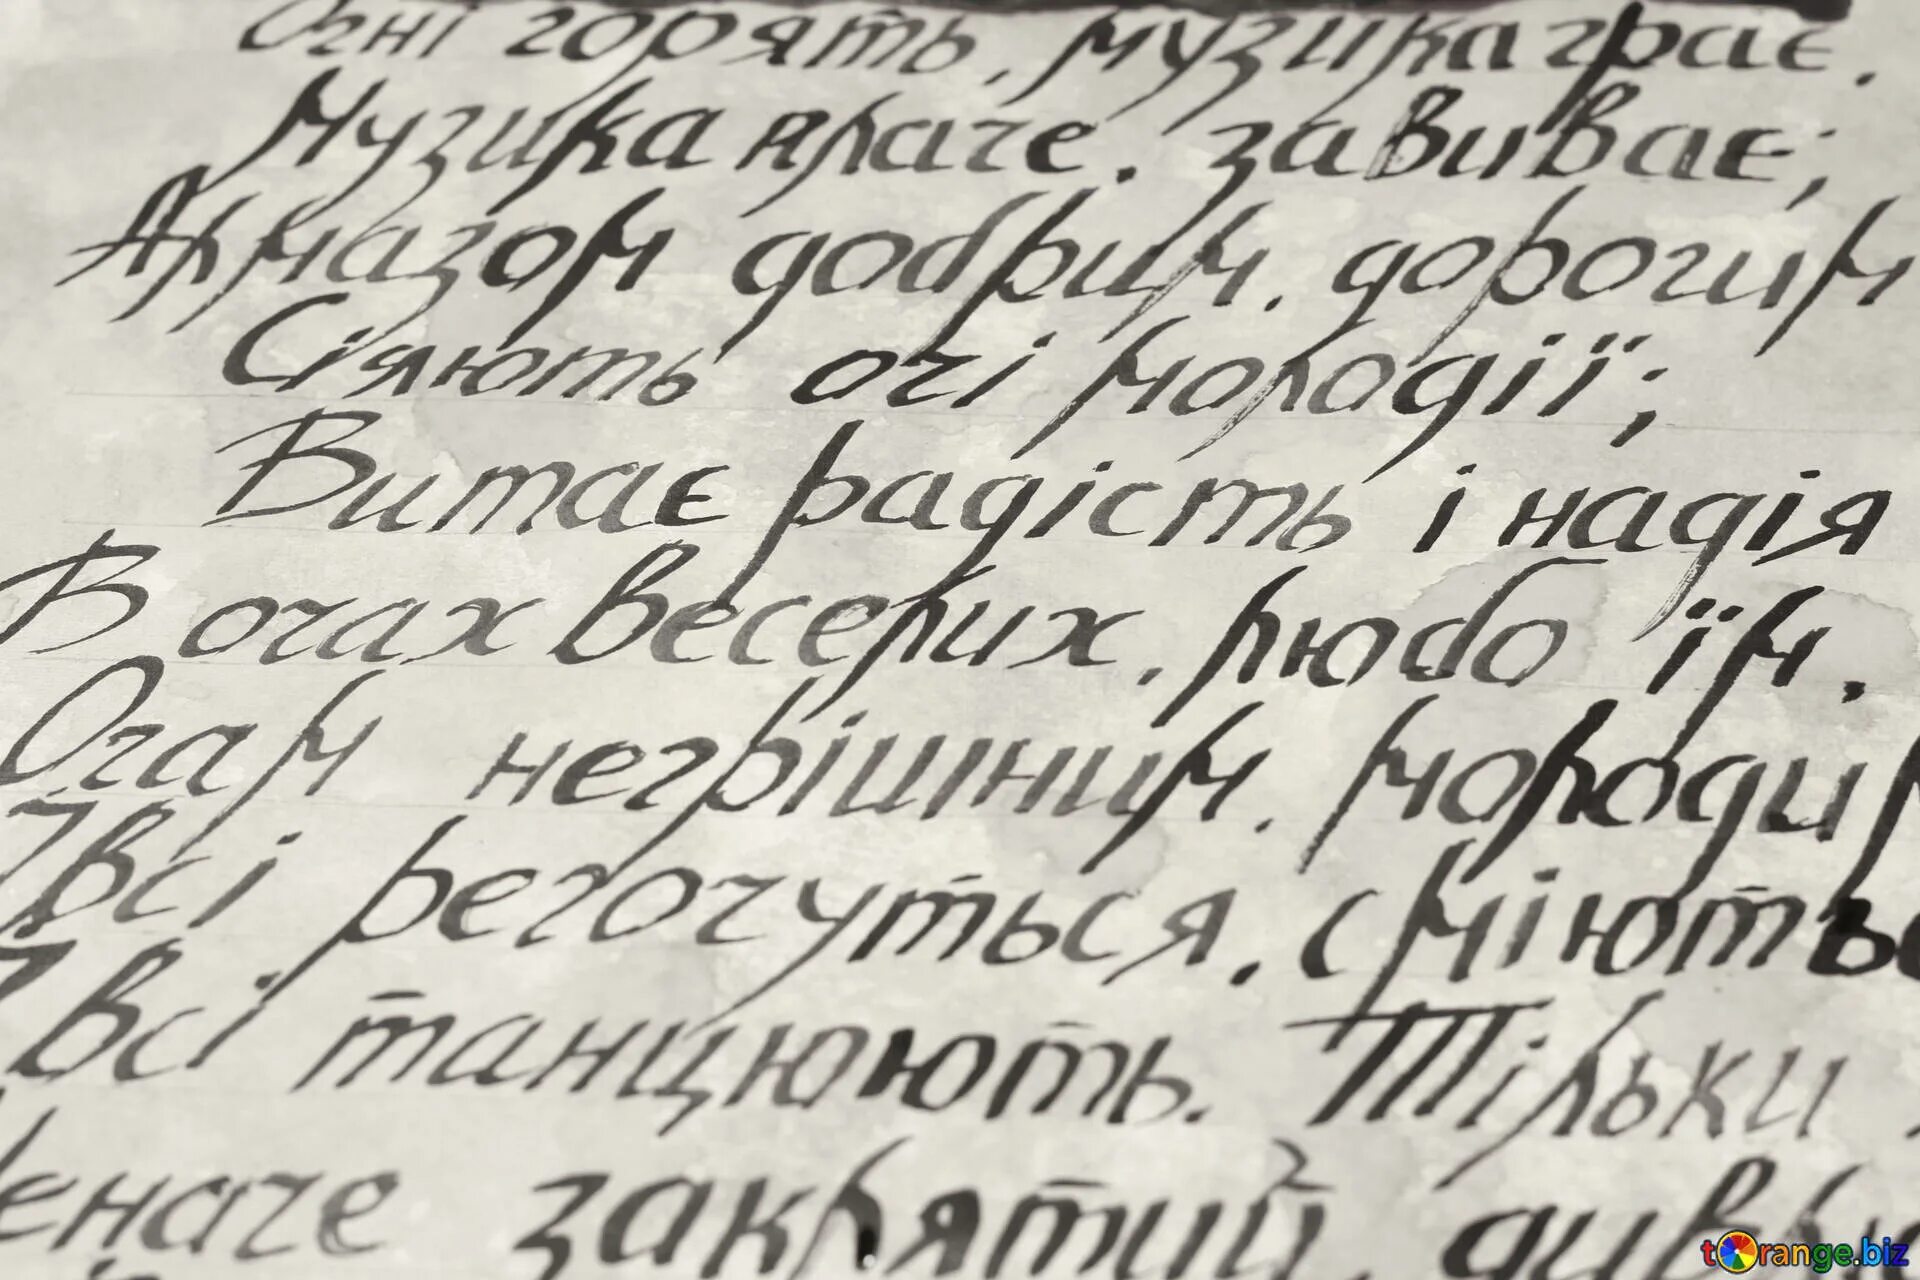 Огні горять, музика грає,
Музика плаче, завиває;
Алмазом добрим, дорогим
Сіяють очі молодії;
Витає радість і надія
В очах веселих, любо їм,
Очам негрішним, молодим
І всі регочуться, сміються
І всі танцюють. Тільки я
Неначе заклятий, дивлю
torange.biz